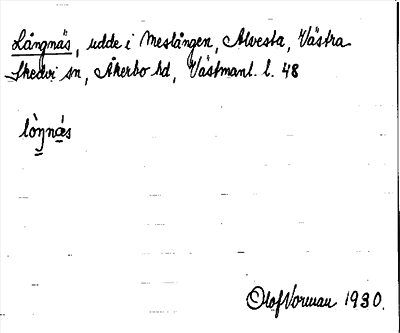 Långnäs, udde i Meslången, Alvesta, Västra
Skedvi sn, Åkerbo hd, Västmanl. l. 48
lòŋnás
Olof Vorman 1930.